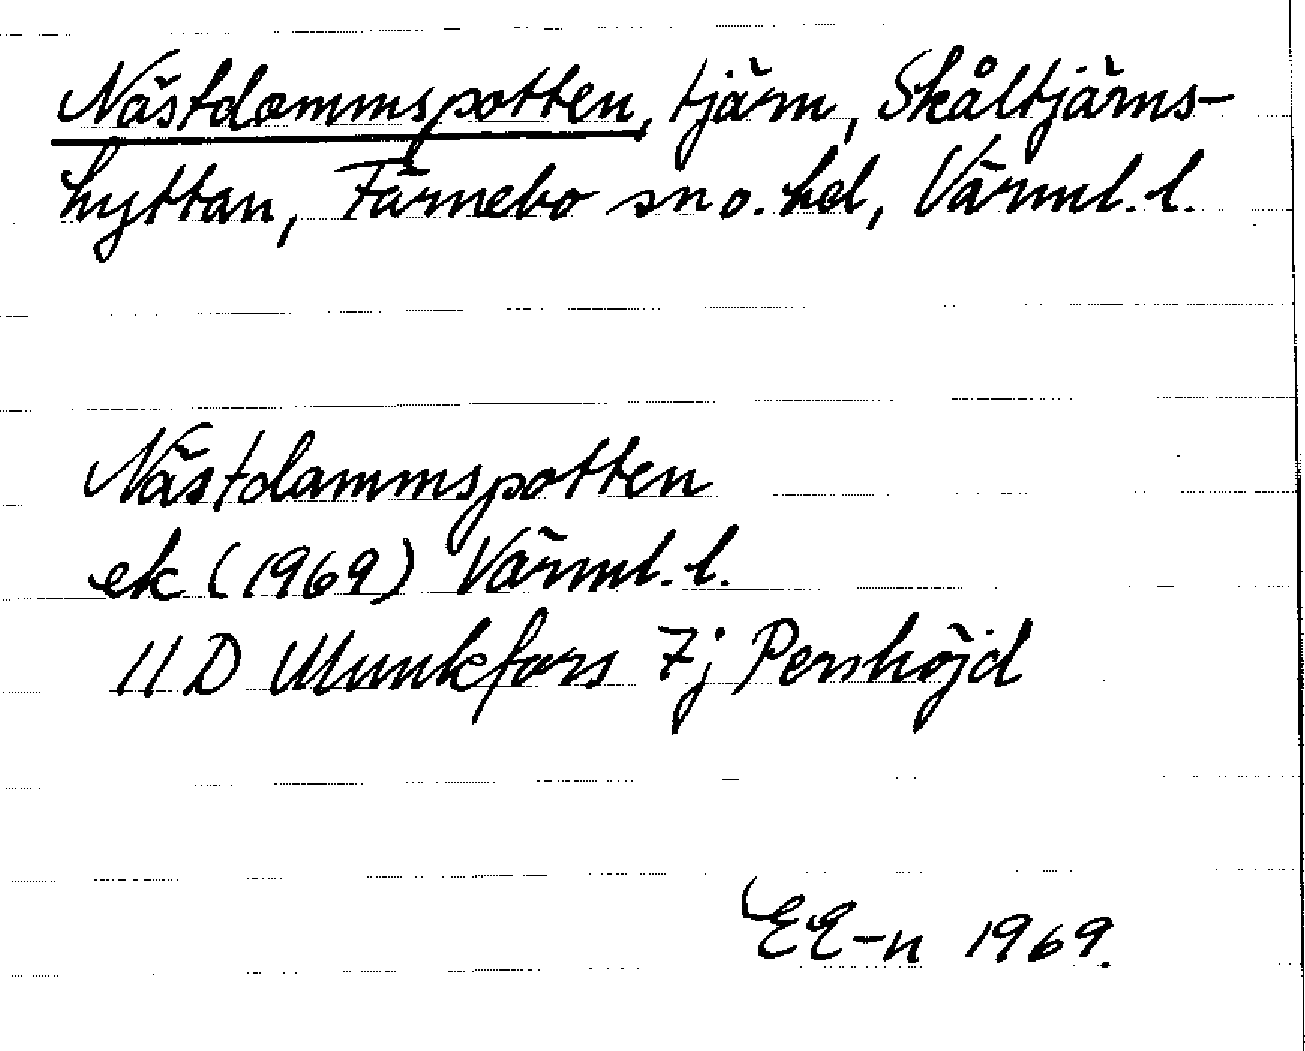 Nästdammspotten, tjärn, Skåltjärns-
hyttan, Färnebo sn o. hd, Värml. l.
Nästdammspotten
ek (1969) Värml. l.
11 D Munkfors 7j Pershöjd
EE-n 1969.